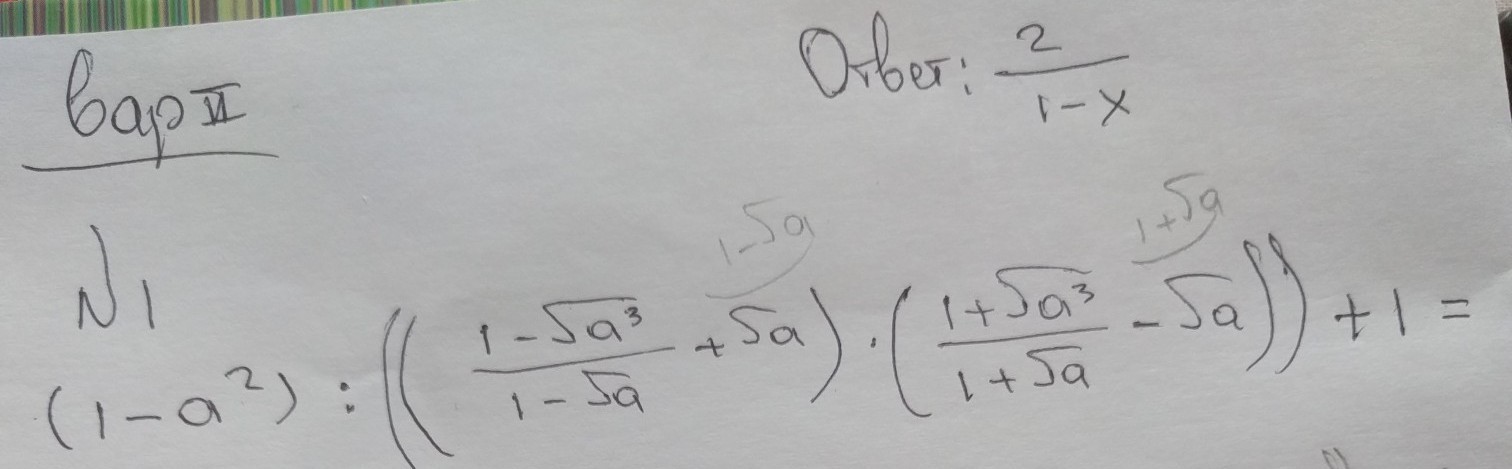 Вар II
Ответ: 2/(1-x)
N1
1-√a 1+√a
(1-a²) : (((1-√a³)/(1-√a) + √a) · ((1+√a³)/(1+√a) - √a)) + 1 =